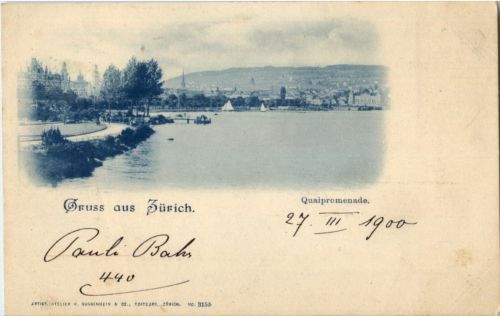 Gruss aus Zürich.
Quaipromenade.
27. III 1900
Pauli Bahr
440
ARTIST. ATELIER H. GUGGENHEIM & CO., EDITEURS, ZÜRICH. No. 3155